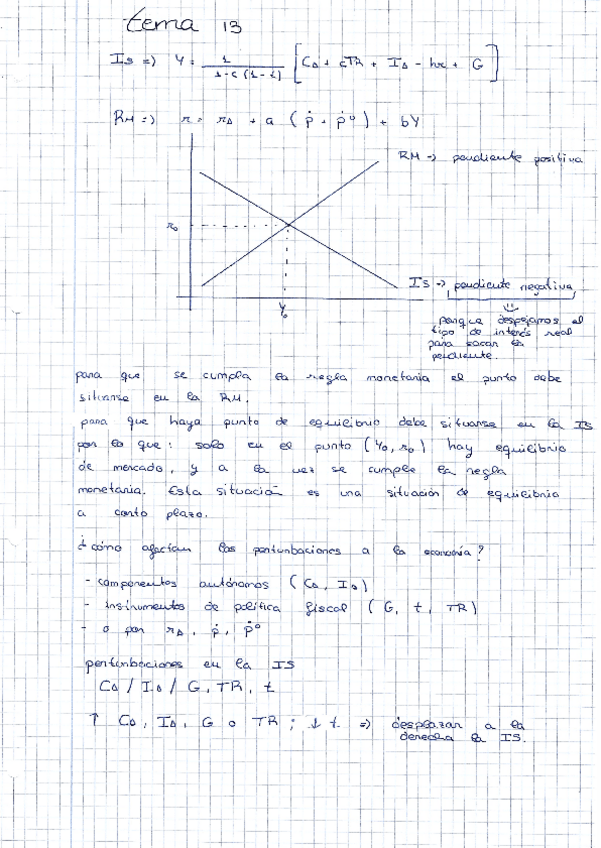 tema 13
IS => Y = 1 / 1-c(1-t) [C₀ + cTR + I₀ - hr + G]
RM => r = r₀ + a (ṗ + ṗ⁰) + bY
RM => pendiente positiva
r₀
IS => pendiente negativa
Y₀
porque despejamos el
tipo de interés real
para sacar la
pendiente.
para que se cumpla la regla monetaria el punto debe
situarse en la RM.
para que haya punto de equilibrio debe situarse en la IS
por lo que: solo en el punto (Y₀, r₀) hay equilibrio
de mercado, y a la vez se cumple la regla
monetaria. Esta situación es una situación de equilibrio
a corto plazo.
¿cómo afectan las perturbaciones a la economía?
- componentes autónomos (C₀, I₀)
- instrumentos de política fiscal (G, t, TR)
- o por r₀, ṗ, ṗ⁰
perturbaciones en la IS
C₀ / I₀ / G, TR, t
↑ C₀, I₀, G o TR; ↓ t => desplazar a la
derecha la IS.